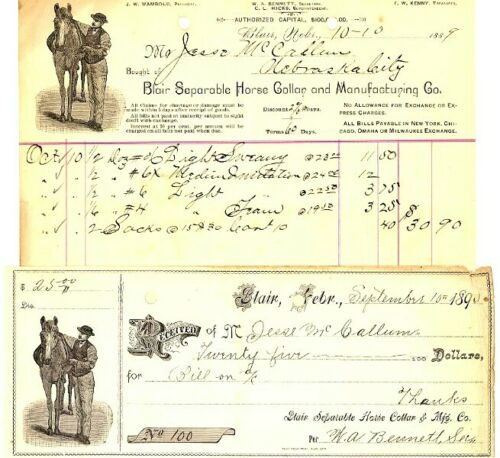 J. W. WAMBOLD, PRESIDENT. W. A. BENNETT, SECRETARY. F. W. KENNY, TREASURER.
C. L. HICKS, SUPERINTENDENT.
AUTHORIZED CAPITAL, $100,000.00.
Blair, Nebr., 10-10 1889
Mr Jesse McCallum
Nebraska City
Bought of
Blair Separable Horse Collar and Manufacturing Co.
All Claims for shortage or damage must be made within 5 days after receipt of goods.
All bills not paid at maturity subject to sight draft with exchange.
Interest at 10 per cent. per annum will be charged on all bills not paid when due.
Discounts Days.
Terms 60 Days.
NO ALLOWANCE FOR EXCHANGE OR EXPRESS CHARGES.
ALL BILLS PAYABLE IN NEW YORK, CHICAGO, OMAHA OR MILWAUKEE EXCHANGE.
Oct 10 1/2 Dz # Light @ 23 11 50
" " 1/2 " #6X Medium Imitation @ 24 12
" " " #6 Light " @ 22 50 3 75
" " 1/6 " #4 " Team @ 19 50 3 25
" " 2 Sacks @ 15 30 40 $ 30 90
$ 25.00
Dis.
Blair, Nebr., September 10th 1890
RECEIVED of M Jesse McCallum
Twenty five 100 Dollars,
for Bill on a/c
Thanks
Blair Separable Horse Collar & Mfg. Co.
No 100
Per W.A. Bennett Sec